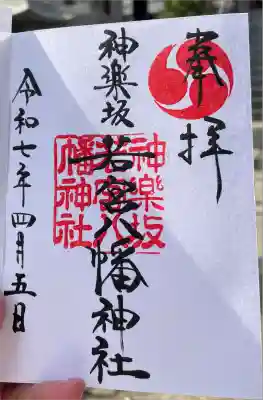 奉拝
神楽坂
若宮八幡神社
神楽坂
若宮八
幡神社
令和七年四月五日